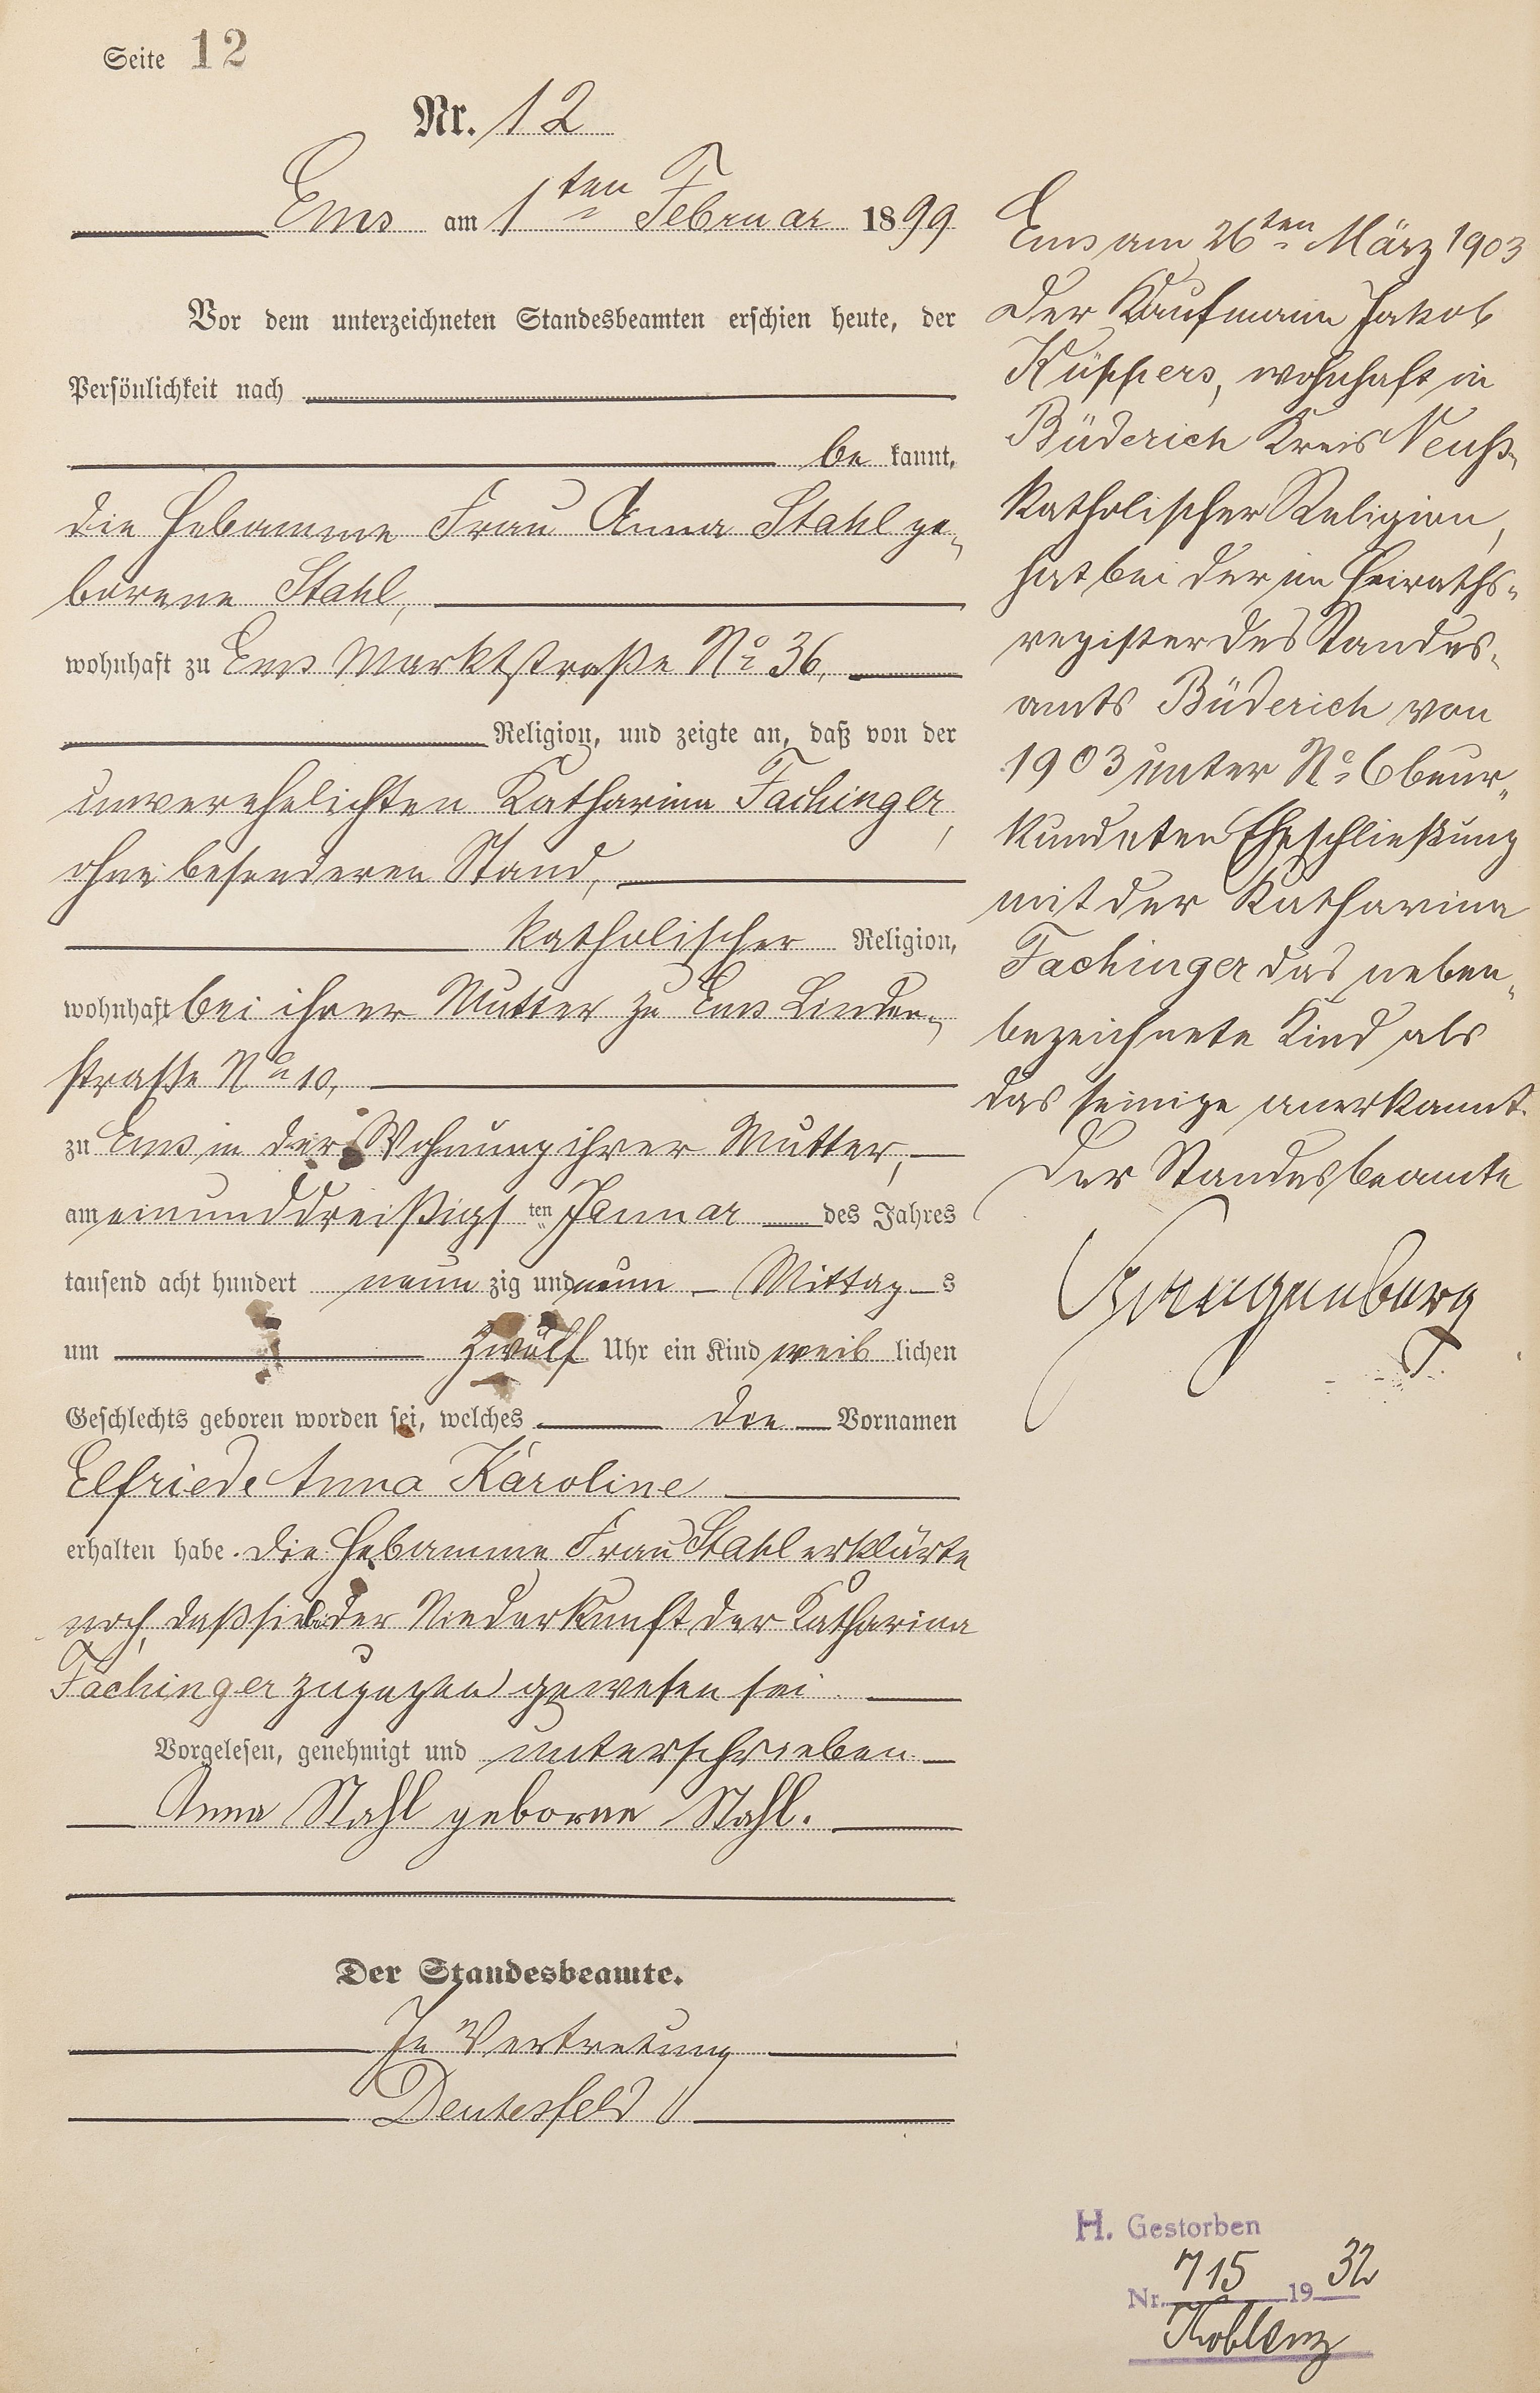 Seite 12
Nr. 12
Ems am 1ten Februar 1899
Vor dem unterzeichneten Standesbeamten erschien heute, der
Persönlichkeit nach
be kannt,
die Hebamme Frau Anna Stahl ge-
borene Stahl,
wohnhaft zu Ems Marktstraße No 36,
Religion, und zeigte an, daß von der
unverehelichten Katharina Fachinger,
ohne besonderen Stand,
katholischer Religion,
wohnhaft bei ihrer Mutter zu Ems Linden-
strasse No 10,
zu Ems in der Wohnung ihrer Mutter,
am einunddreißigs ten Januar des Jahres
tausend acht hundert neun zig und neun Mittag s
um zwölf Uhr ein Kind weib lichen
Geschlechts geboren worden sei, welches die Vornamen
Elfriede Anna Karoline
erhalten habe. Die Hebamme Frau Stahl erklärte
noch, daß sie bei der Niederkunft der Katharina
Fachinger zugegen gewesen sei.
Vorgelesen, genehmigt und unterschrieben
Anna Stahl geborne Stahl.
Der Standesbeamte.
In Vertretung
Deutesfeld
Ems am 26ten März 1903
Der Kaufmann Jakob
Küppers, wohnhaft in
Büderich Kreis Neuß,
katholischer Religion,
hat bei der im Heiraths-
register des Standes-
amts Büderich von
1903 unter No 6 beur-
kundeten Eheschließung
mit der Katharina
Fachinger das neben-
bezeichnete Kind als
das seinige anerkannt.
Der Standesbeamte
H. Gestorben
Nr. 715 1932
Koblenz